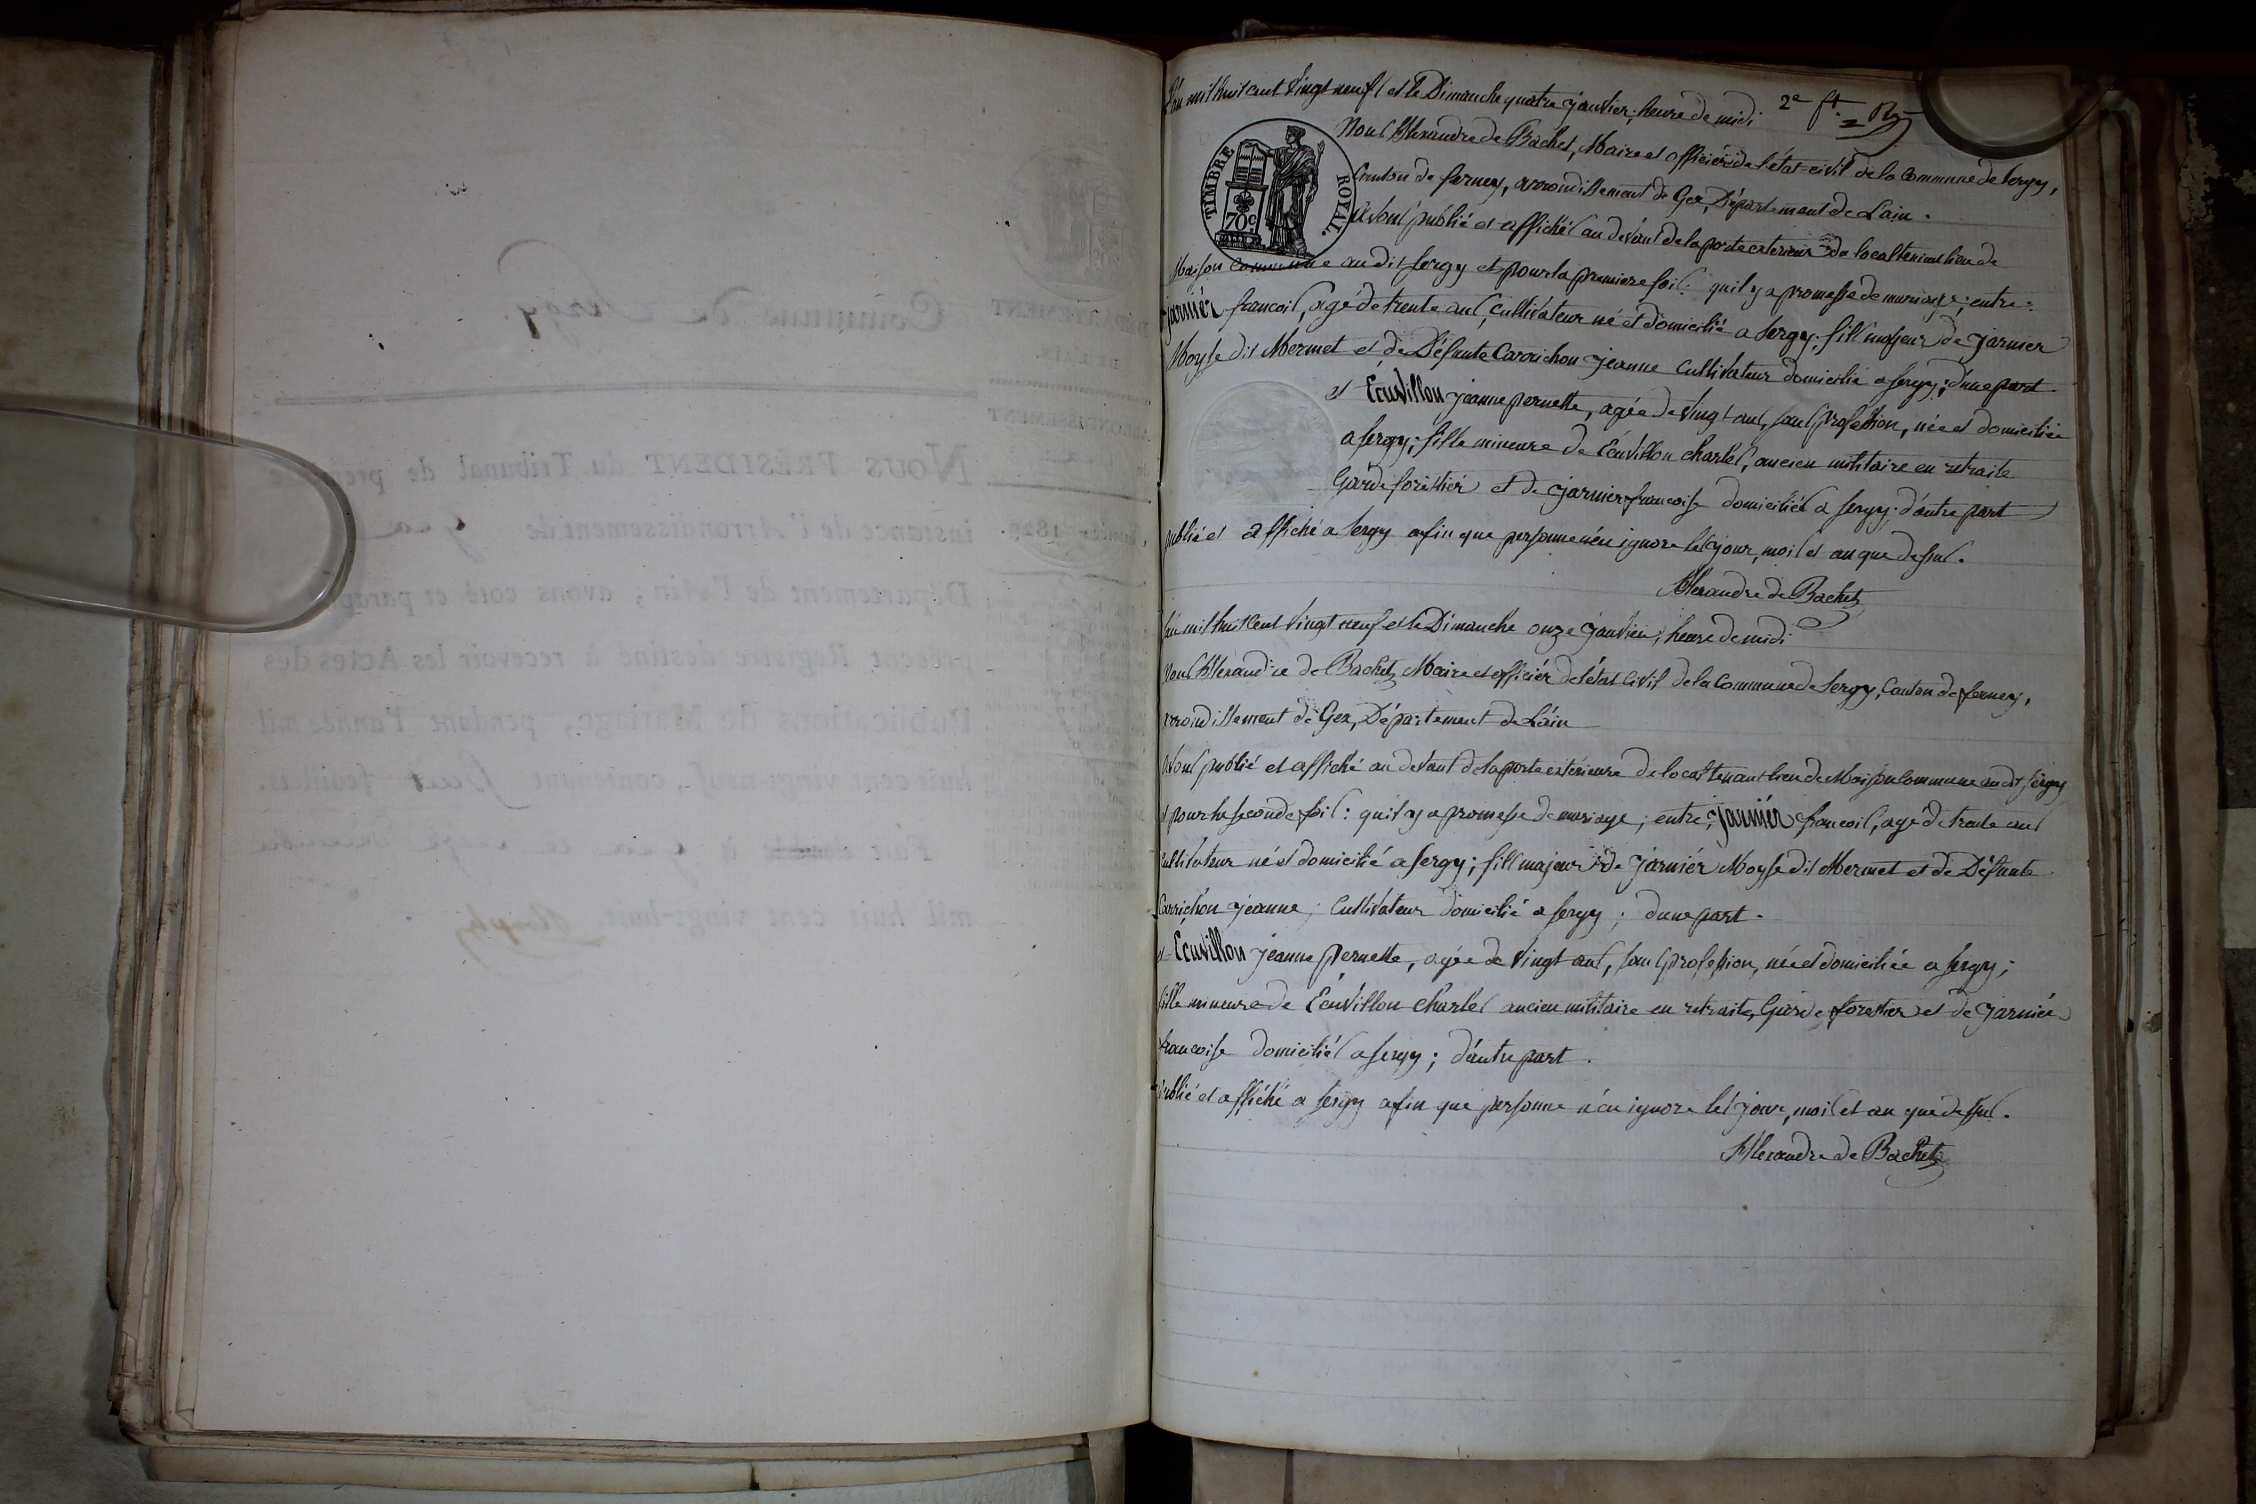 L'an mil huit cent vingt neuf et le Dimanche quatre janvier; heure de midi
2e ft.
Nous Alexandre de Bachet, Maire et officiér de l'état-civil de la Commune de Sergy,
Canton de ferney, arrondissement de Gex, Département de L'ain.
TIMBRE ROYAL.
70c
Avons publié et affiché au devant de la porte exterieure de local tenant lieu de
Maison Commune au dit Sergy et pour la premiere fois: quil y a promesse de mariage; entre:
jarniér francois, agé de trente ans, Cultivateur né et domicilié a Sergy; fils majeur de jarnier
Moyse dit Mermet et de Défunte Carrichon jeanne Cultivateur domicilié a Sergy; d'une part
et Écuvillon jeanne pernette, agée de vingt ans, sans profession, née et domiciliée
a Sergy; fille mineure de Écuvillon charles, ancien militaire en retraite
Garde foréstiér et de jarnier francoise domiciliés a Sergy; d'autre part
publié et affiché a Sergy afin que personne n'en ignore les jour, mois et an que dessus.
Alexandre de Bachet
L'an mil huit cent vingt neuf et le Dimanche onze janvier; heure de midi
Nous Alexandre de Bachet Maire et officiér de l'état civil de la Commune de Sergy, Canton de ferney,
arrondissement de Gex, Département de L'ain
avons publié et affiché au devant de la porte extérieure de local tenant lieu de Maison Commune au dit Sergy
et pour la seconde fois: quil y a promesse de mariage; entre; jarniér francois, agé de trente ans
Cultivateur né et domicilié a Sergy; fils majeur de jarniér Moyse dit Mermet et de Défunte
Carrichon jeanne; Cultivateur domicilié a Sergy; d'une part.
et Écuvillon jeanne pernette, agée de vingt ans, sans profession, née et domiciliée a Sergy;
fille mineure de Écuvillon charles ancien militaire en retraite, Garde forestier et de jarniér
francoise domiciliés a Sergy; d'autre part.
Publié et affiché a Sergy afin que personne n'en ignore les jour, mois et an que dessus.
Alexandre de Bachet